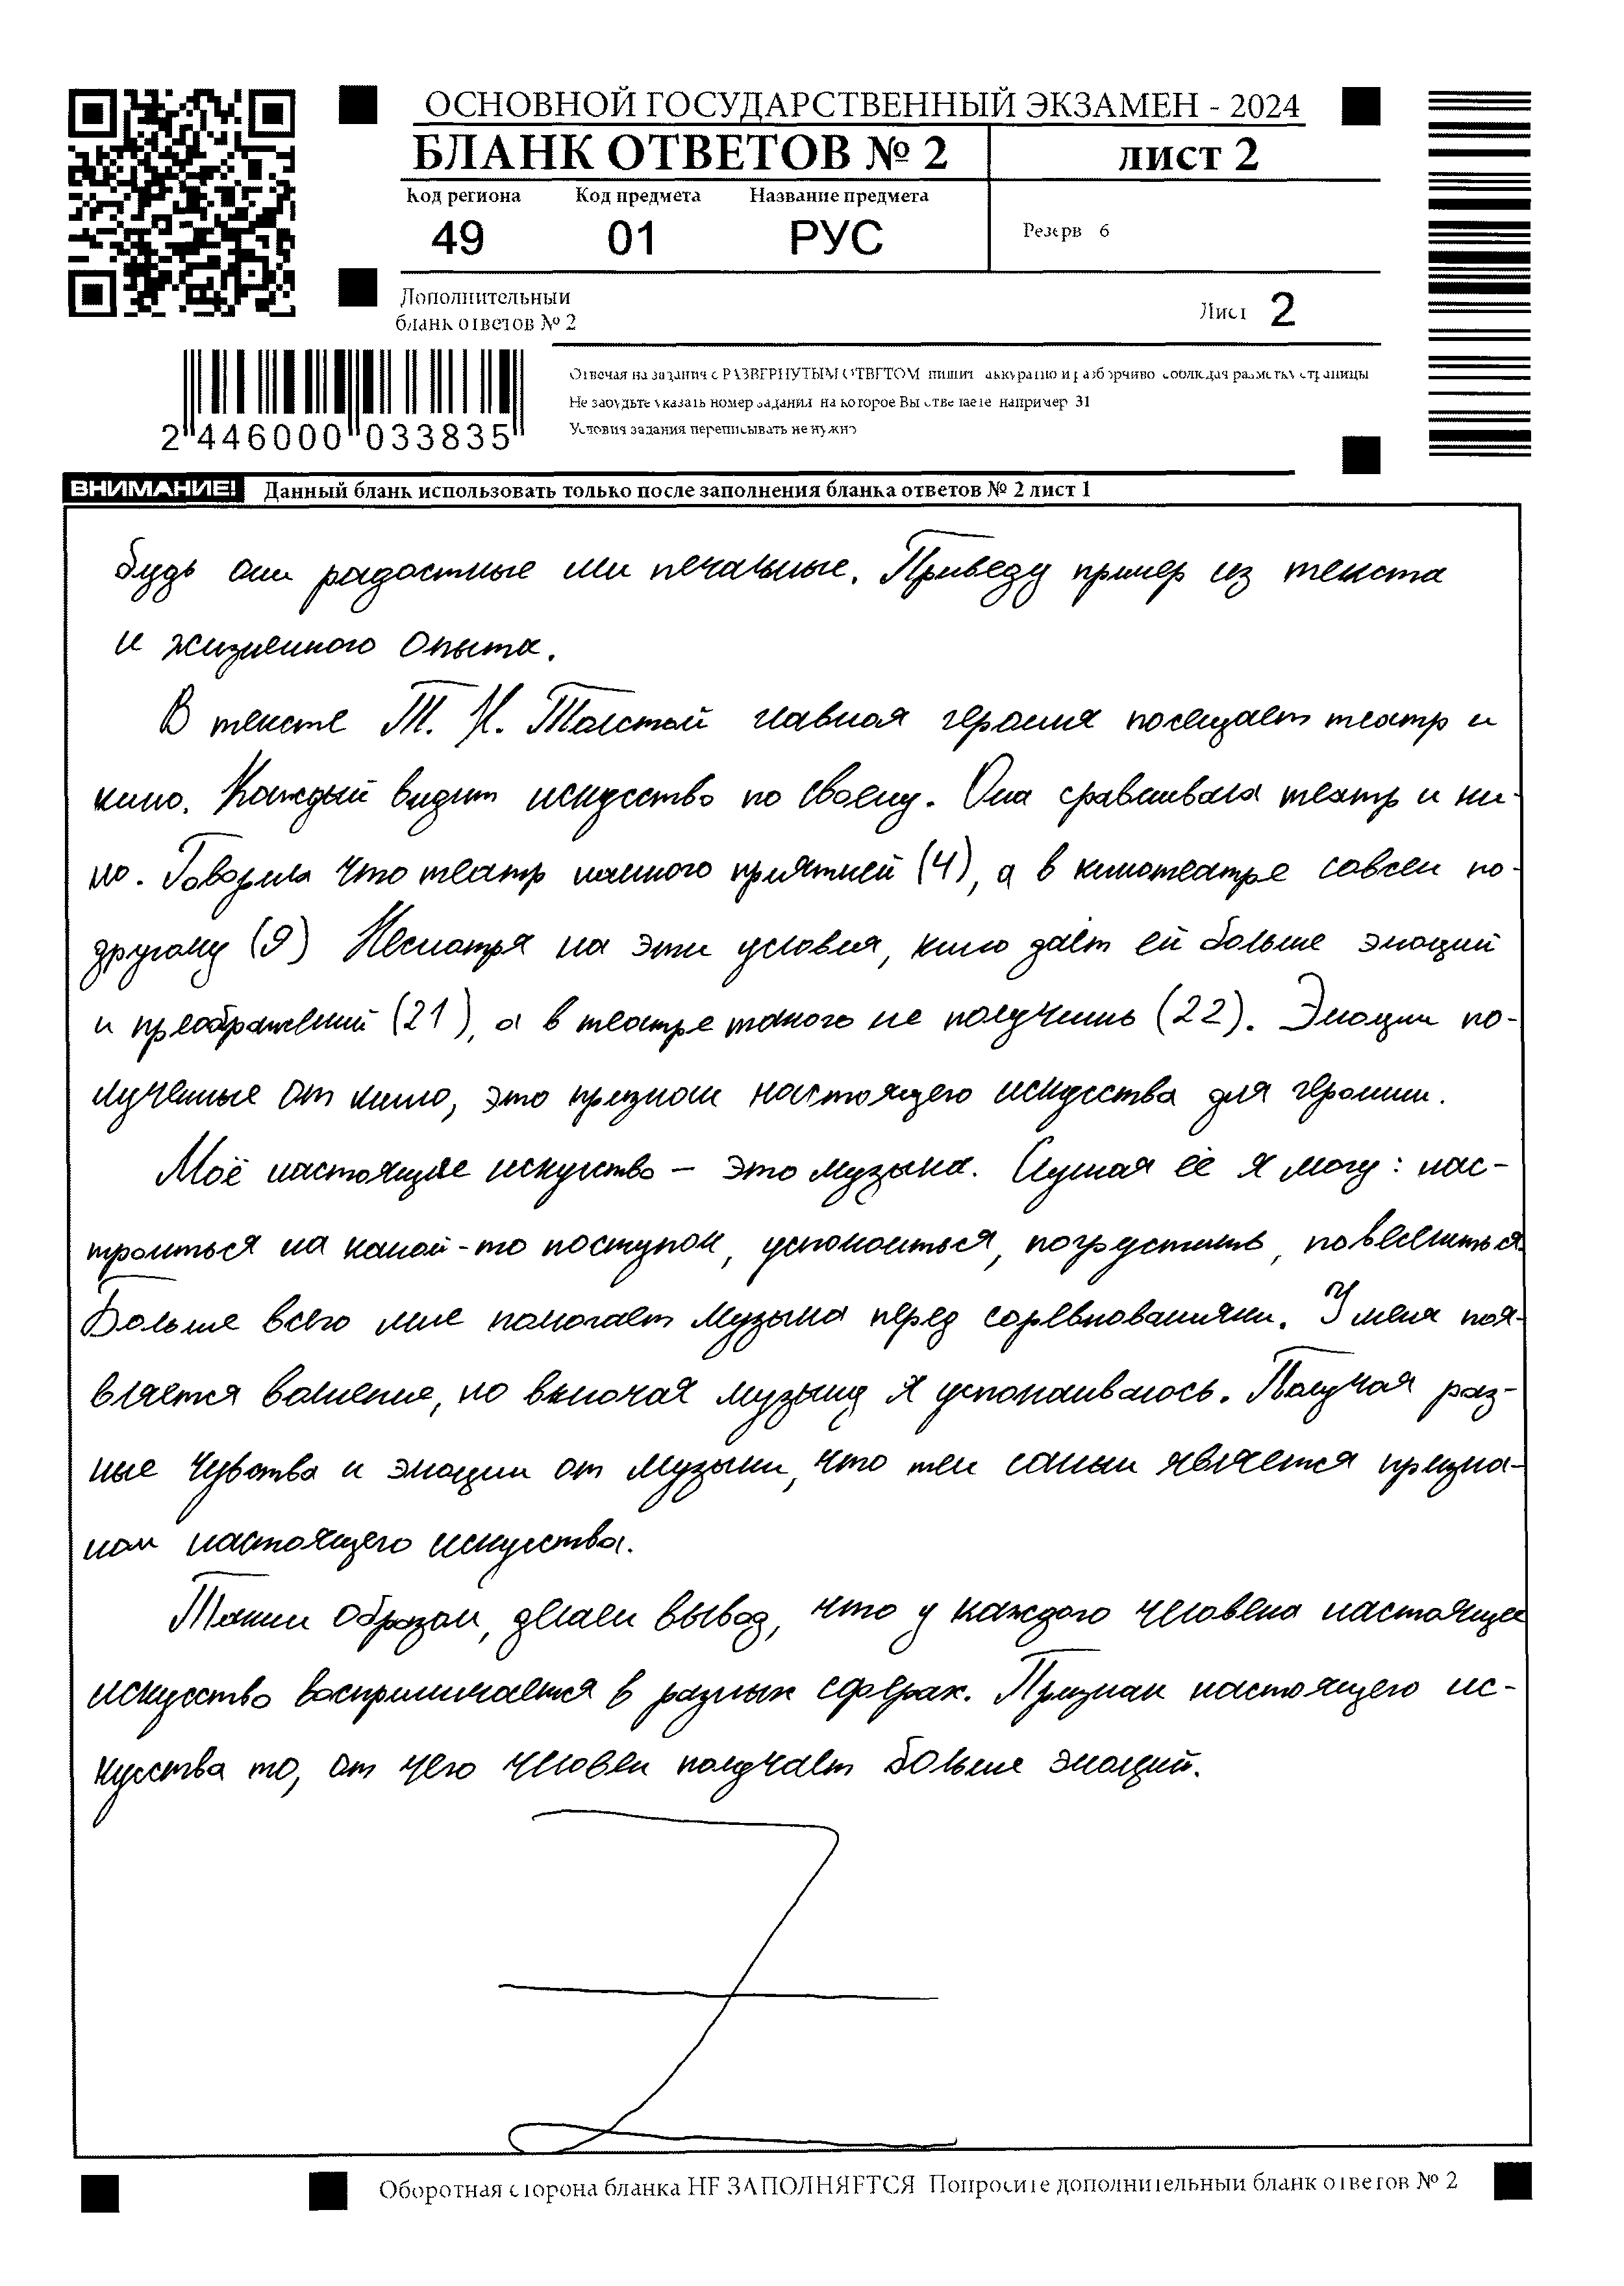 ОСНОВНОЙ ГОСУДАРСТВЕННЫЙ ЭКЗАМЕН - 2024
БЛАНК ОТВЕТОВ № 2
ЛИСТ 2
Код региона Код предмета Название предмета
49 01 РУС
Резерв 6
Дополнительный
бланк ответов № 2
Лист 2
2 446000 033835
Отвечая на задания с РАЗВЕРНУТЫМ ОТВЕТОМ пишите аккуратно и разборчиво соблюдая разметку страницы
Не забудьте указать номер задания на которое Вы отвечаете например 31
Условия задания переписывать не нужно
ВНИМАНИЕ! Данный бланк использовать только после заполнения бланка ответов № 2 лист 1
будь они радостные или печальные. Приведу пример из текста
и жизненного опыта.
В тексте Т. Н. Толстой главная героиня посещает театр и
кино. Каждый видит искусство по своему. Она сравнивала театр и ки-
но. Говорила что театр намного приятней (4), а в кинотеатре совсем по-
другому (9) Несмотря на эти условия, кино даёт ей больше эмоций
и преображений (21), а в театре такого не получишь (22). Эмоции по-
лученные от кино, это признак настоящего искусства для героини.
Моё настоящее искуство – это музыка. Слушая её я могу: нас-
троиться на какой-то поступок, успокоиться, погрустить, повеселиться.
Больше всего мне помогает музыка перед соревнованиями. У меня поя-
вляется волнение, но включая музыку я успокаиваюсь. Получая раз-
ные чувства и эмоции от музыки, что тем самым является призна-
ком настоящего искусства.
Таким образом, делаем вывод, что у каждого человека настоящее
искусство воспринимается в разных сферах. Признак настоящего ис-
кусства то, от чего человек получает больше эмоций.
Оборотная сторона бланка НЕ ЗАПОЛНЯЕТСЯ Попросите дополнительный бланк ответов № 2